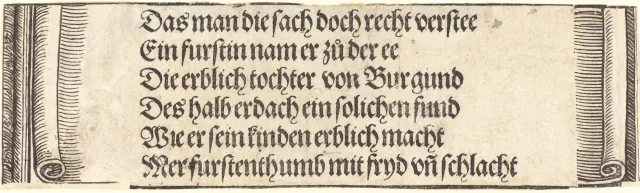 Das man die sach doch recht verstee
Ein furstin nam er zů der ee
Die erblich tochter von Burgund
Des halb erdach ein solichen fund
Wie er sein kinden erblich macht
Mer furstenthumb mit fryd vn̄ schlacht